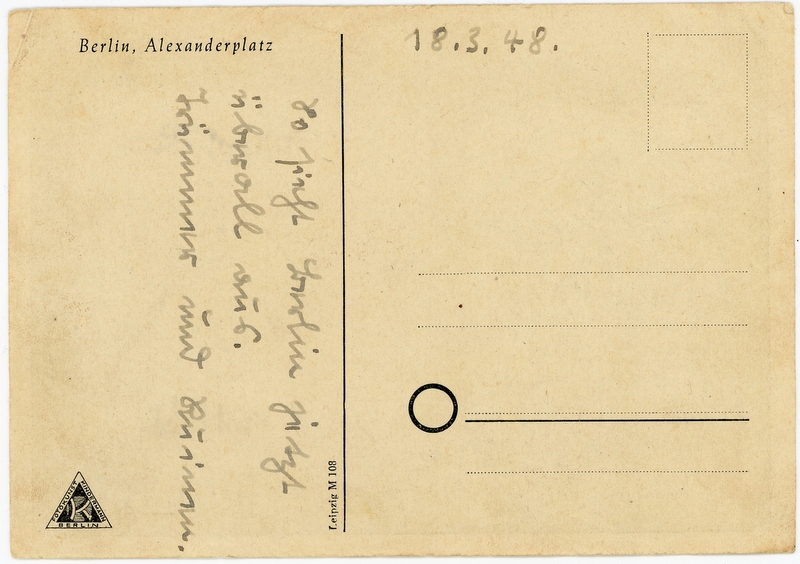 Berlin, Alexanderplatz
18.3.48.
So sieht Berlin jetzt
überall aus.
Trümmer und Ruinen.
Leipzig M 108
FOTOKUNST KINDERMANN
BERLIN